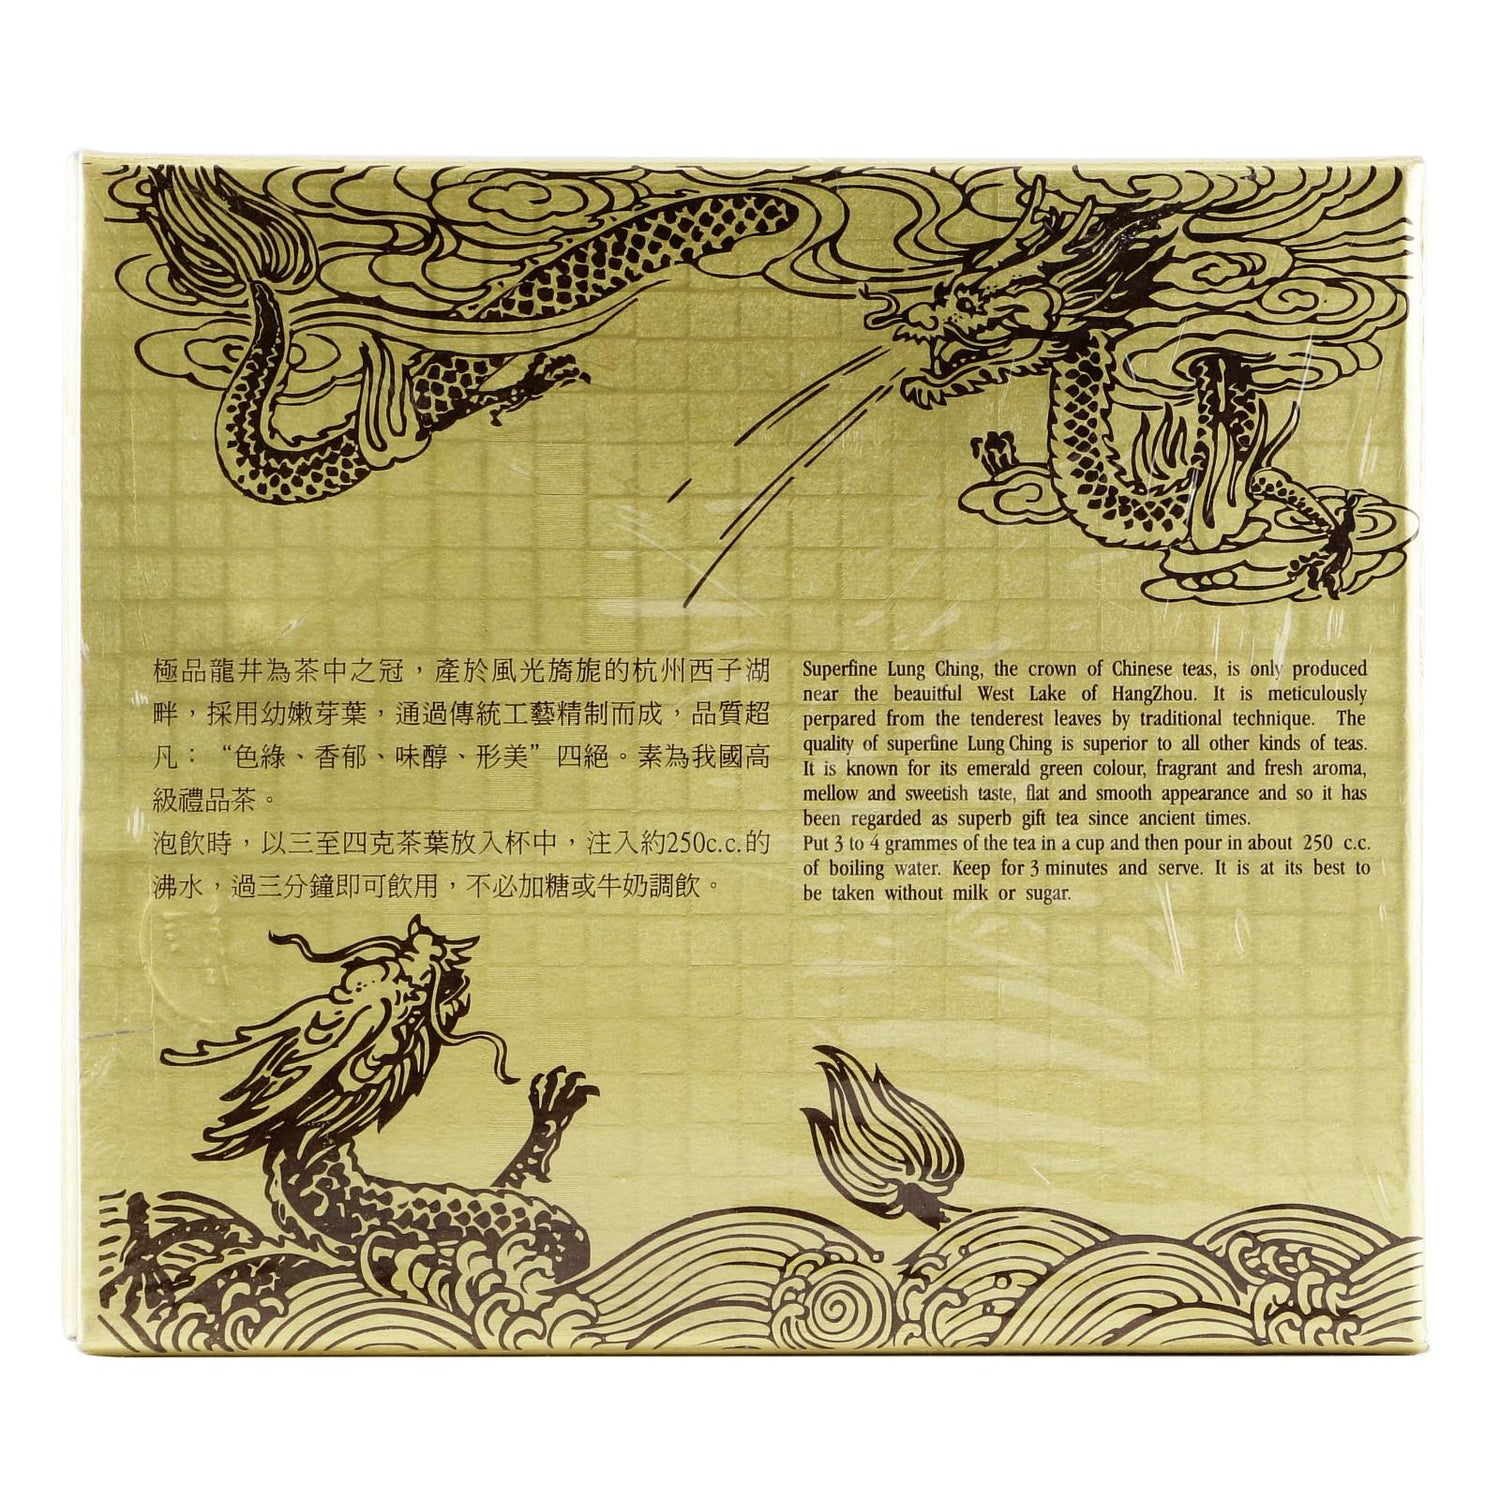 極品龍井為茶中之冠，產於風光旖旎的杭州西子湖
畔，採用幼嫩芽葉，通過傳統工藝精制而成，品質超
凡：“色綠、香郁、味醇、形美”四絕。素為我國高
級禮品茶。
泡飲時，以三至四克茶葉放入杯中，注入約250c.c.的
沸水，過三分鐘即可飲用，不必加糖或牛奶調飲。
Superfine Lung Ching, the crown of Chinese teas, is only produced
near the beauitful West Lake of HangZhou. It is meticulously
perpared from the tenderest leaves by traditional technique. The
quality of superfine Lung Ching is superior to all other kinds of teas.
It is known for its emerald green colour, fragrant and fresh aroma,
mellow and sweetish taste, flat and smooth appearance and so it has
been regarded as superb gift tea since ancient times.
Put 3 to 4 grammes of the tea in a cup and then pour in about 250 c.c.
of boiling water. Keep for 3 minutes and serve. It is at its best to
be taken without milk or sugar.